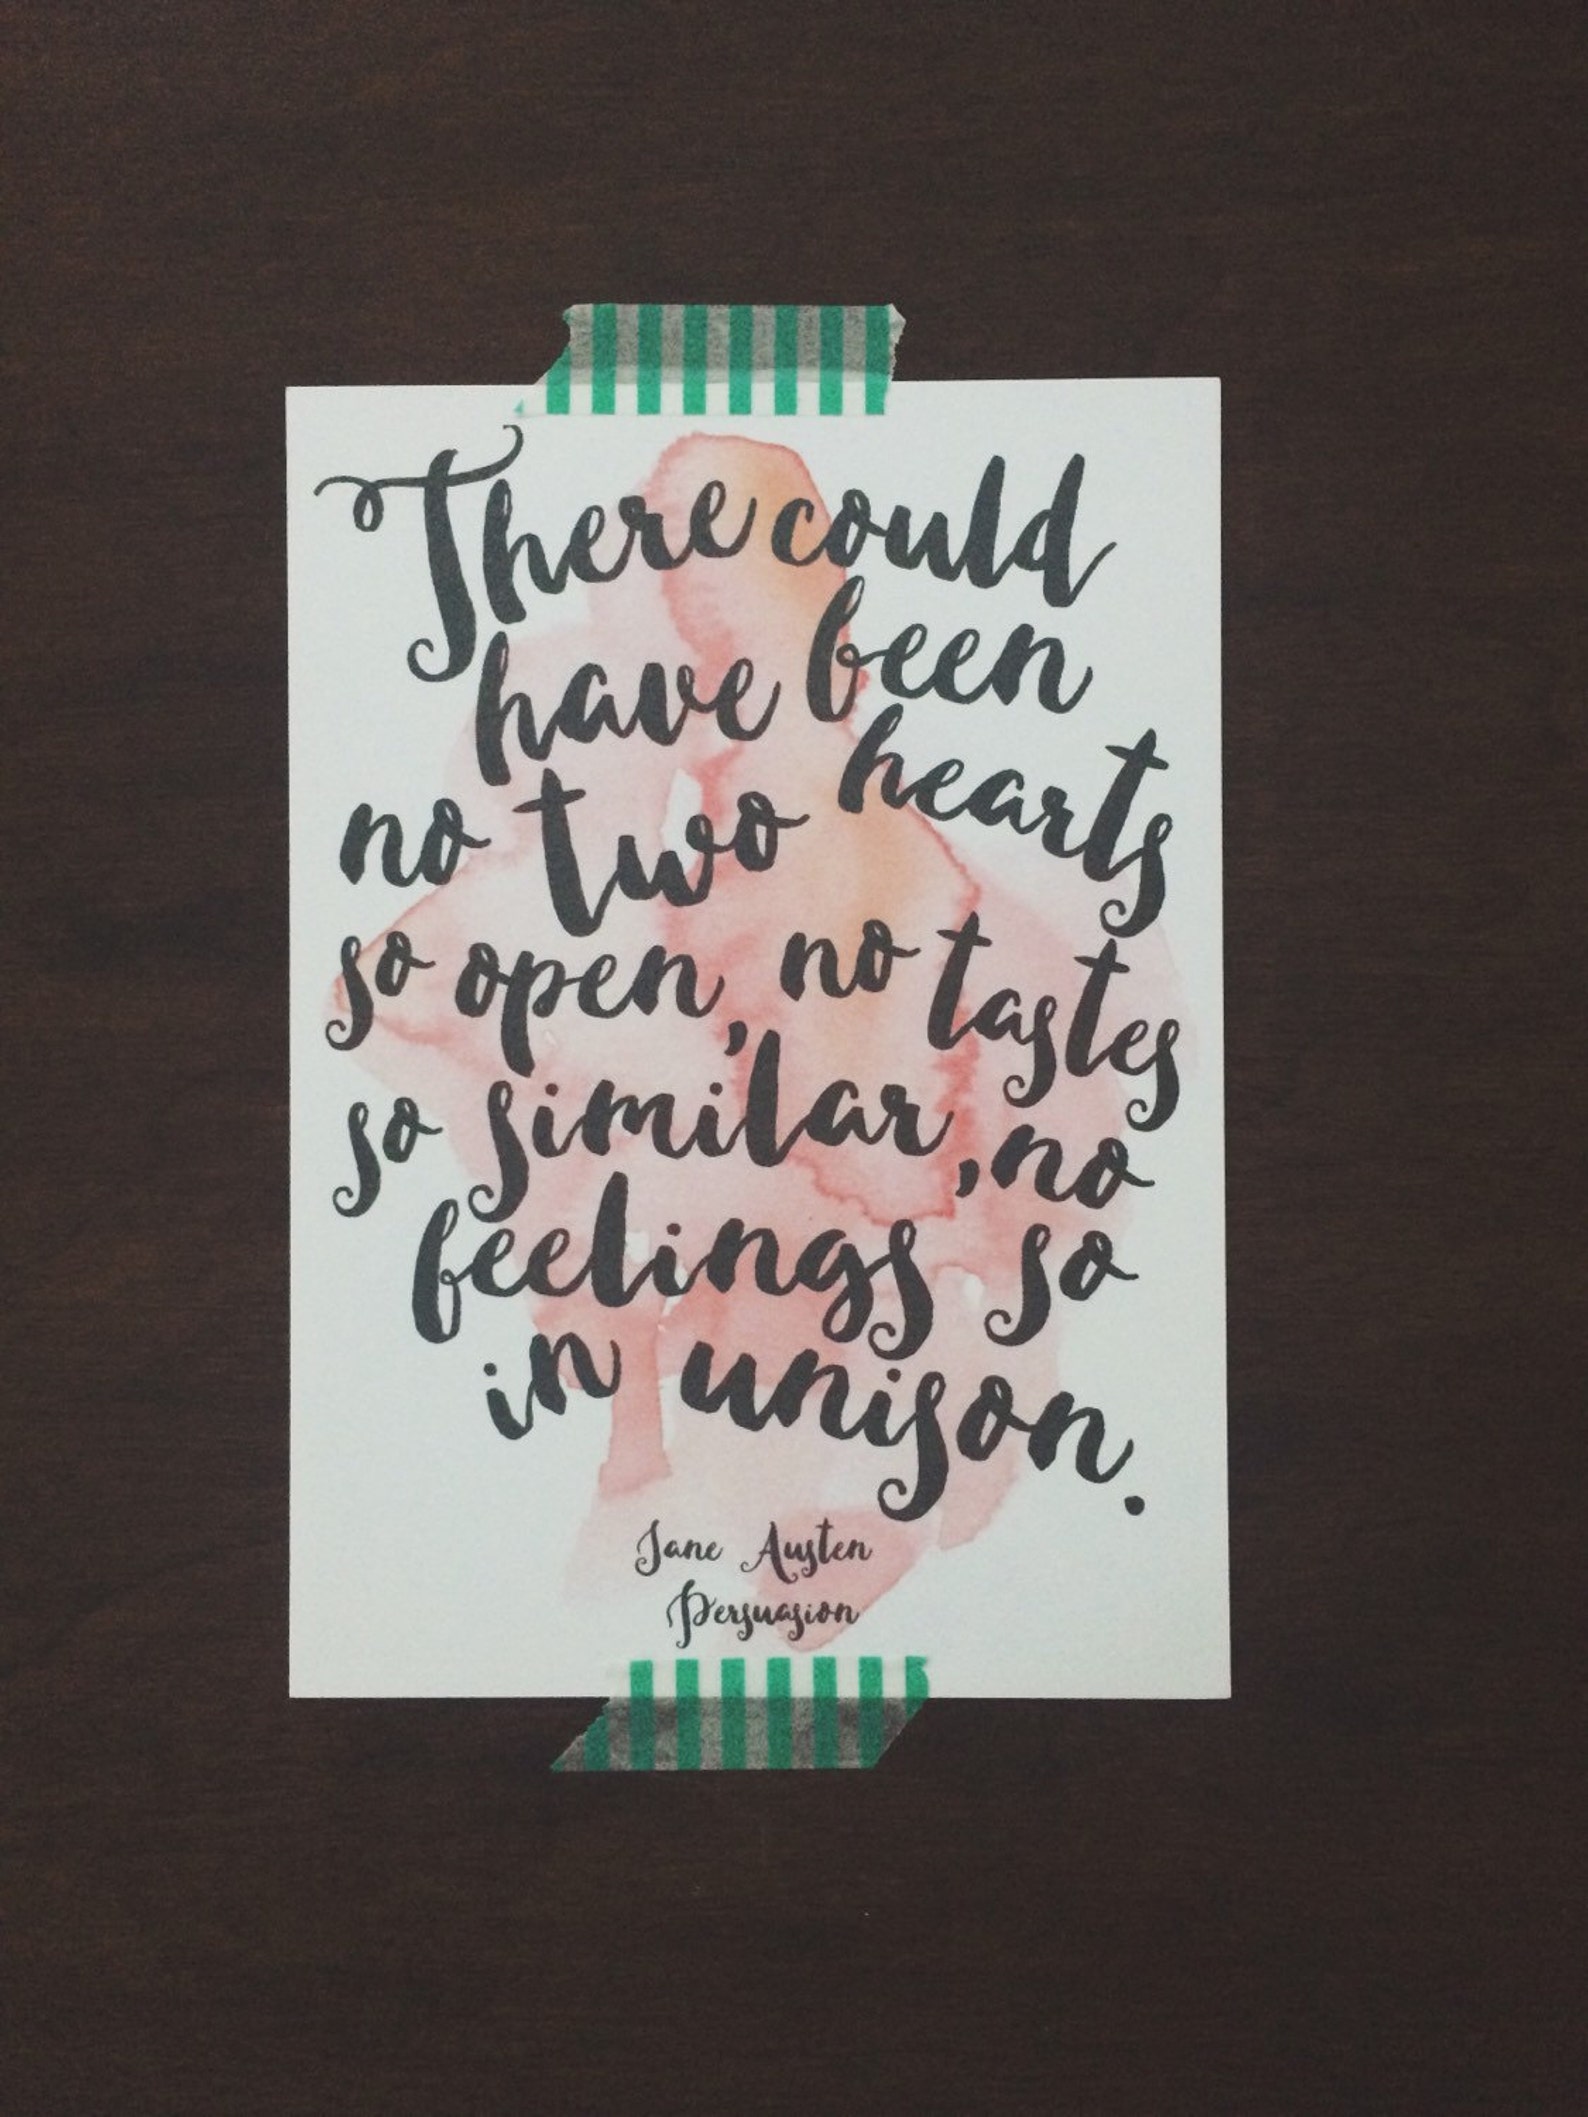 There could
have been
no two hearts
so open, no tastes
so similar, no
feelings so
in unison.
Jane Austen
Persuasion